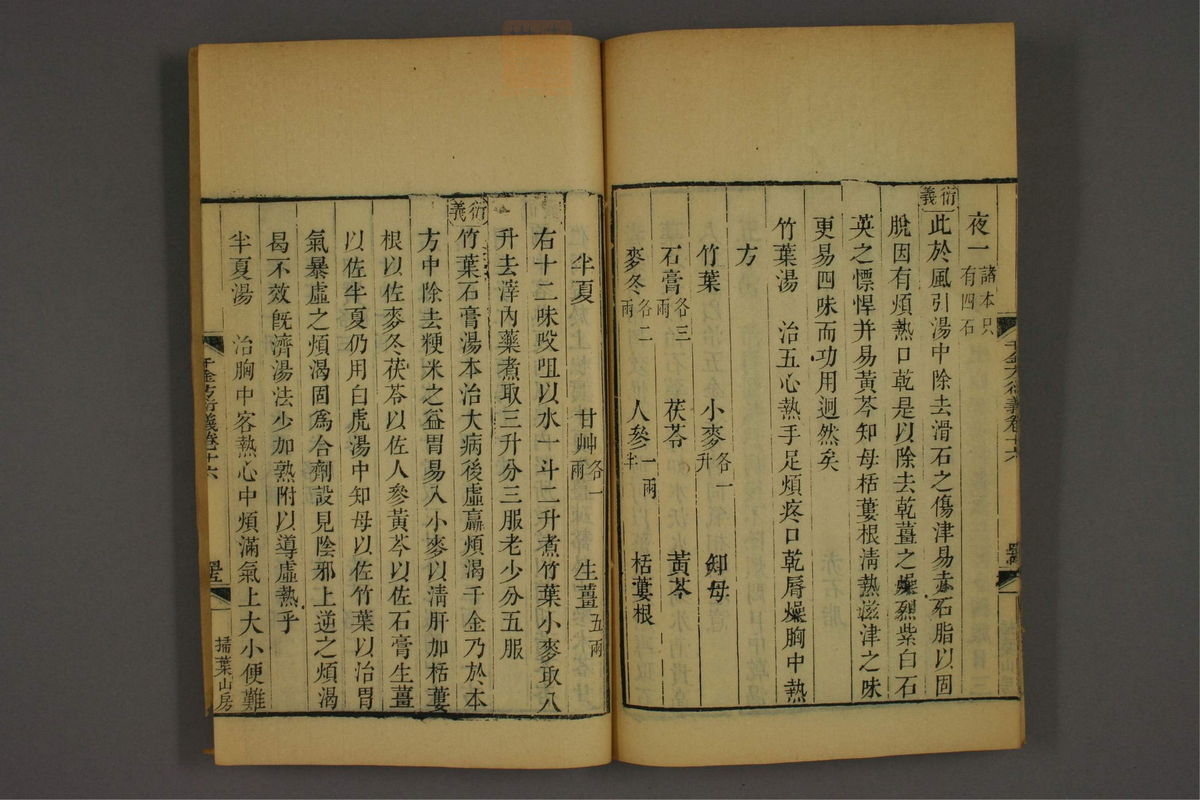 夜一諸本只有四石
衍義此於風引湯中除去滑石之傷津易赤石脂以固
脫因有煩熱口乾是以除去乾薑之燥烈紫白石
英之慓悍并易黃芩知母栝蔞根淸熱滋津之味
更易四味而功用迥然矣
竹葉湯 治五心熱手足煩疼口乾脣燥胸中熱
方
竹葉 小麥各一升 知母
石膏各三兩 茯苓 黃芩
麥冬各二兩 人參一兩半 栝蔞根
半夏 甘艸各一兩 生薑五兩
右十二味㕮咀以水一斗二升煮竹葉小麥取八
升去滓內藥煮取三升分三服老少分五服
衍義竹葉石膏湯本治大病後虛羸煩渴千金乃於本
方中除去粳米之益胃易入小麥以淸肝加栝蔞
根以佐麥冬茯苓以佐人參黃芩以佐石膏生薑
以佐半夏仍用白虎湯中知母以佐竹葉以治胃
氣暴虛之煩渴固爲合劑設見陰邪上逆之煩渴
曷不效旣濟湯法少加熟附以導虛熱乎
半夏湯 治胸中客熱心中煩滿氣上大小便難
千金方衍義卷十六
掃葉山房